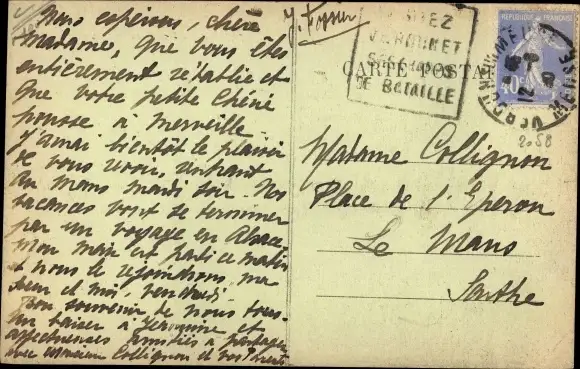 Nous espérons, chère
Madame, que vous êtes
entièrement rétablie et
que votre petite Chérie
pousse à merveille.
J'aurai bientôt le plaisir
de vous revoir, rentrant
au Mans mardi soir. Nos
vacances vont se terminer
par un voyage en Alsace.
Mon mari est parti ce matin
et nous le rejoindrons, ma
et moi, vendredi.
Bon souvenir de nous tous.
Un baiser à et
affectueuses amitiés à partager
avec Monsieur Collignon et vos
VERDUN
SES CHAMPS
DE BATAILLE
CARTE POSTALE
RÉPUBLIQUE FRANÇAISE
40c
VERDUN MEUSE
2058
Madame Collignon
Place de l'Eperon
Le Mans
Sarthe